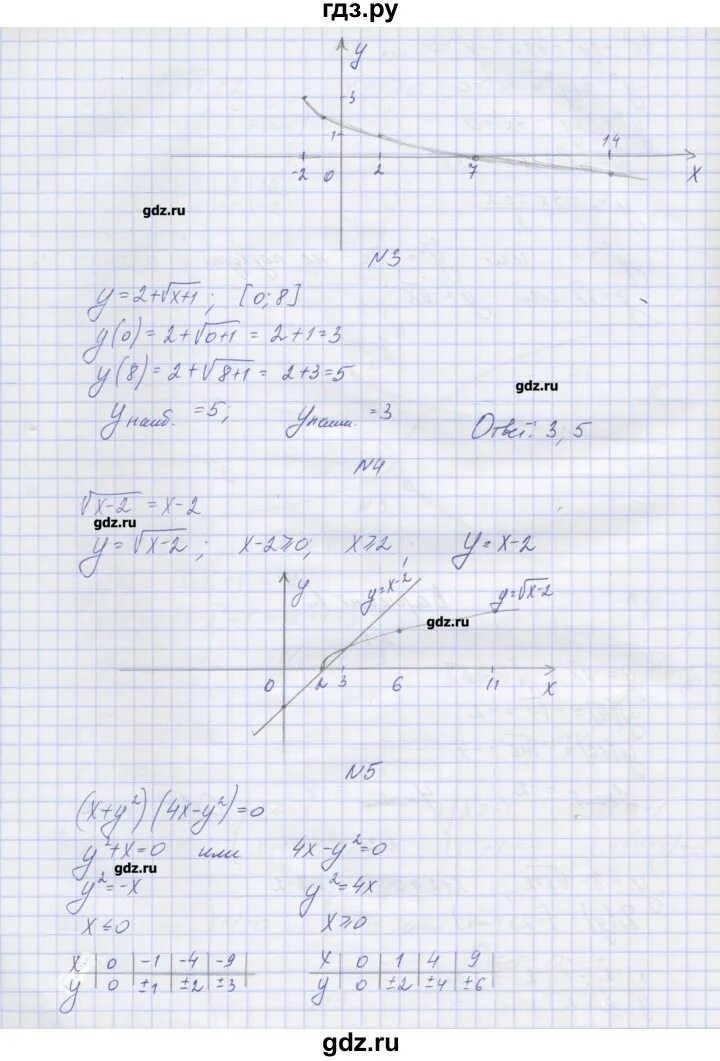 гдз.ру
y
3
1
14
-2 0 2 7 x
gdz.ru
N3
y = 2+√(x+1); [0; 8]
y(0) = 2+√(0+1) = 2+1=3
y(8) = 2+√(8+1) = 2+3=5
gdz.ru
y наиб. =5; y наим. =3
Ответ: 3; 5
N4
√(x-2) = x-2
gdz.ru
y = √(x-2); x-2⩾0; x⩾2; y = x-2
y y=x-2 y=√(x-2)
gdz.ru
0 2 3 6 11 x
N5
(x+y²)(4x-y²)=0
y²+x=0 или 4x-y²=0
gdz.ru
y²=-x y²=4x
x⩽0 x⩾0
x | 0 | -1 | -4 | -9 x | 0 | 1 | 4 | 9
y | 0 | ±1 | ±2 | ±3 y | 0 | ±2 | ±4 | ±6
gdz.ru